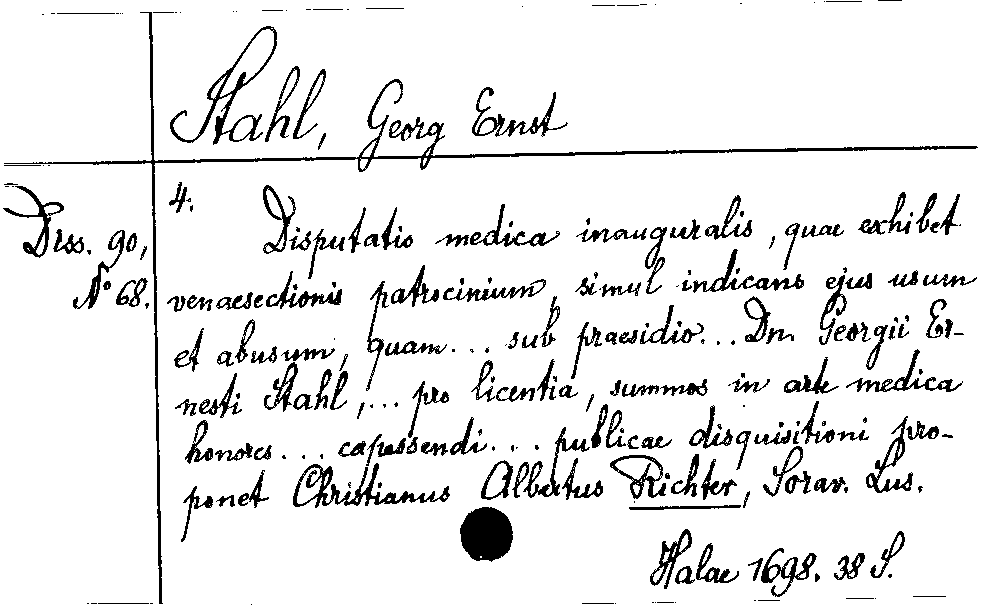 Stahl, Georg Ernst
Diss. 90,
No 68.
4.
Disputatio medica inauguralis, quae exhibet
venaesectionis patrocinium, simul indicans ejus usum
et abusum, quam... sub praesidio... Dn. Georgii Er-
nesti Stahl,... pro licentia, summos in arte medica
honores... capessendi... publicae disquisitioni pro-
ponet Christianus Albertus Richter, Sorav. Lus.
Halae 1698. 38 S.